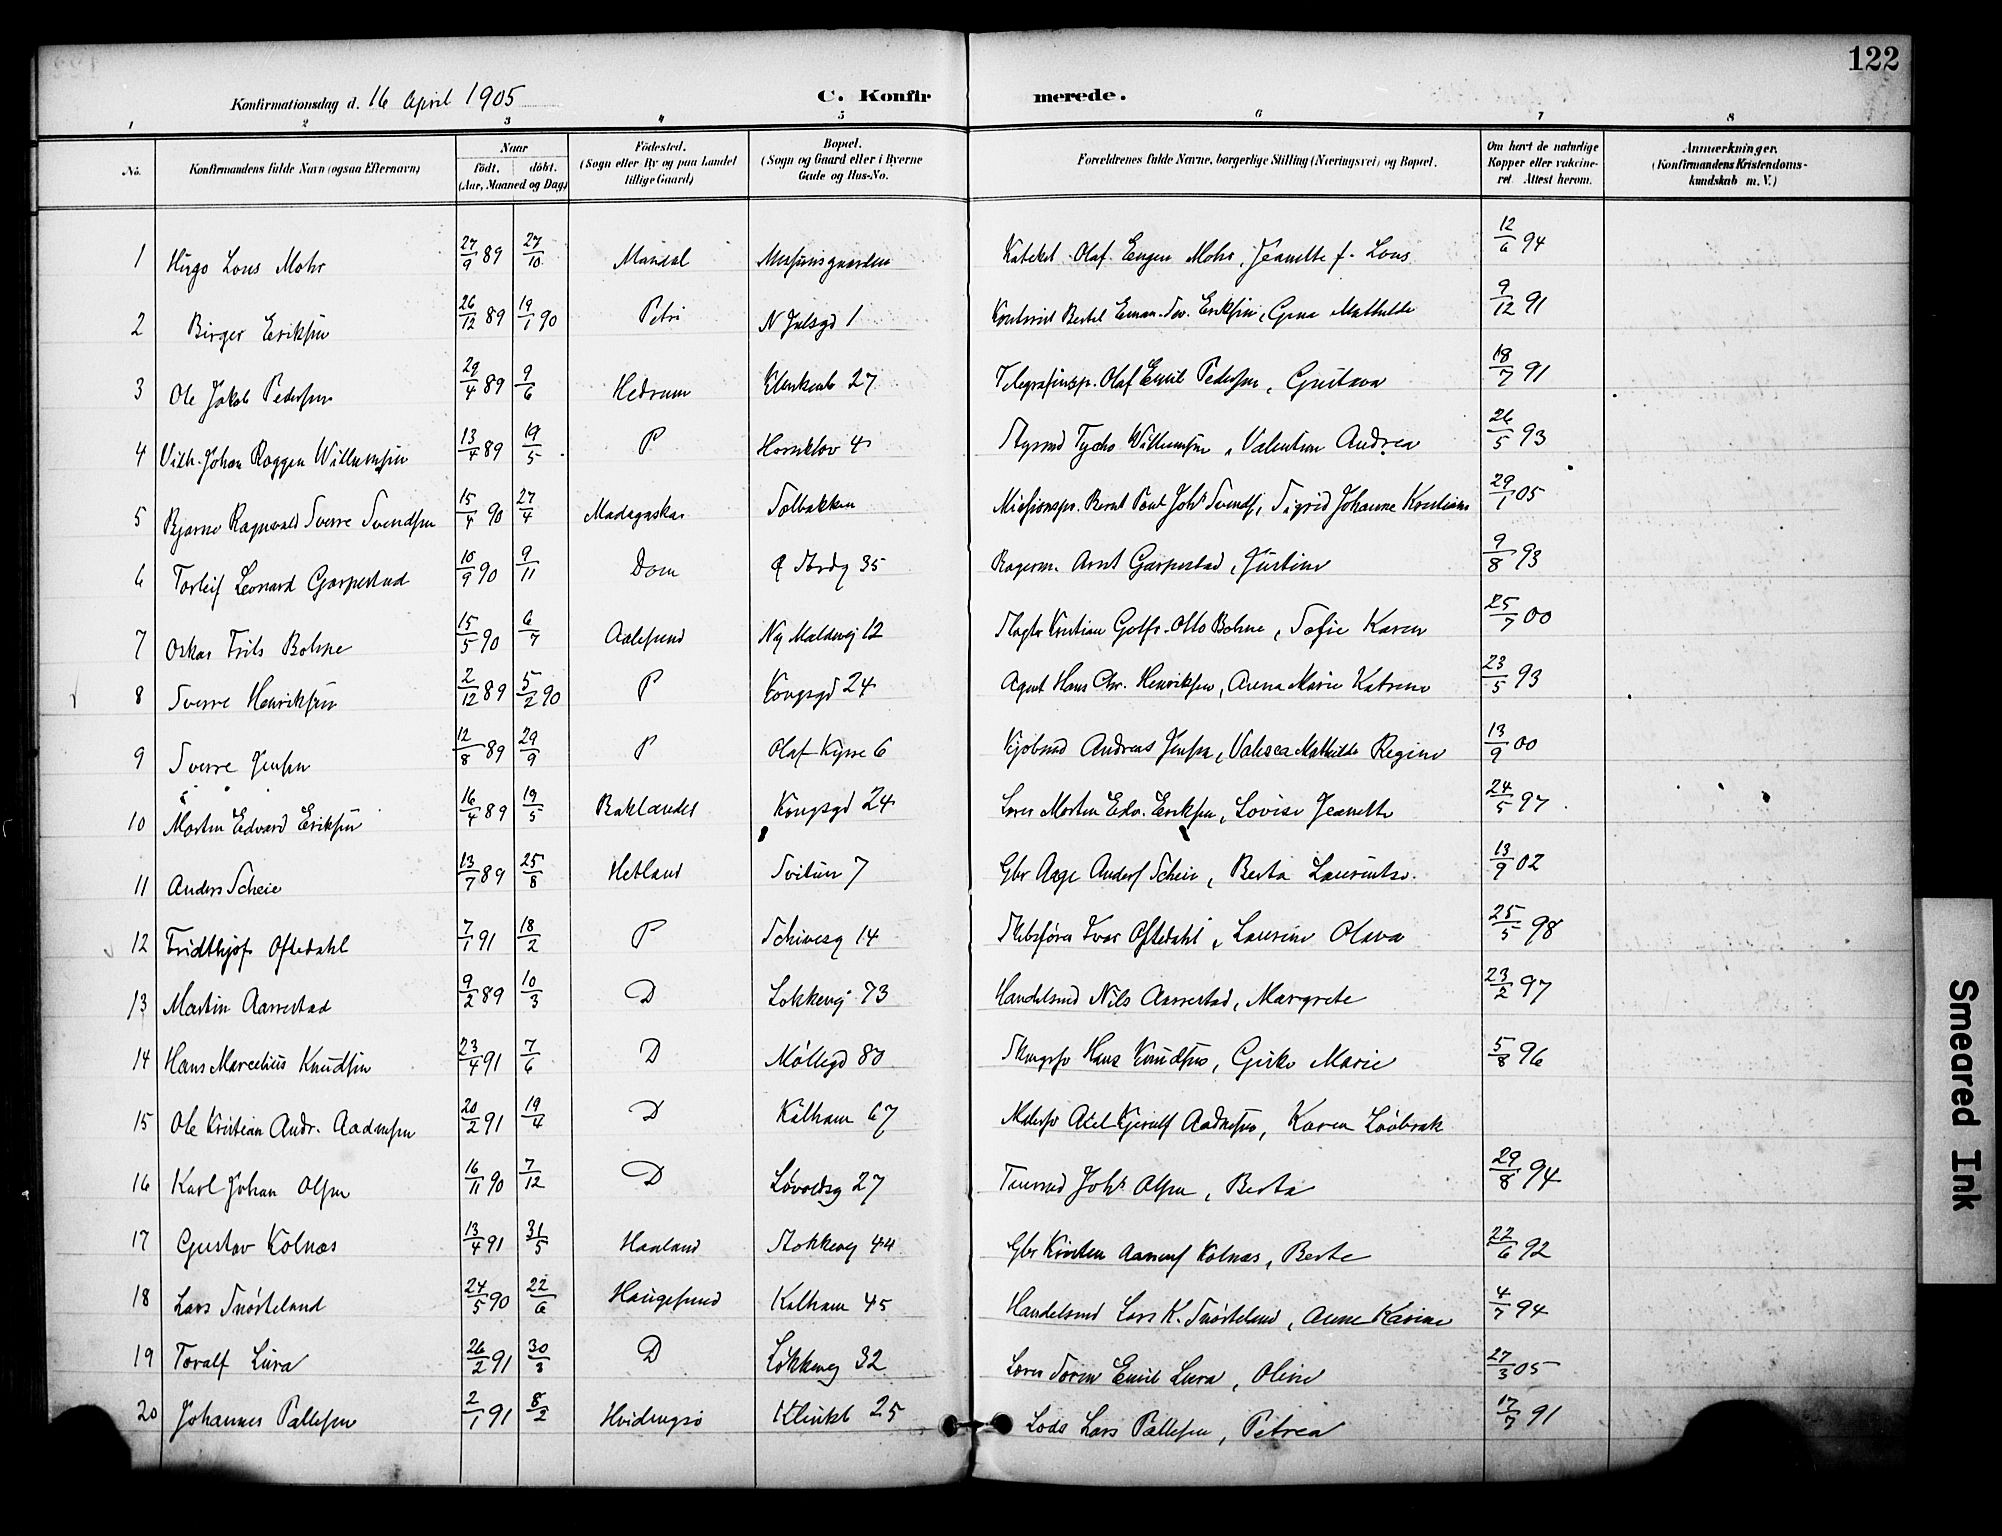 122
Konfirmationsdag d. 16 April 1905
C. Konfirmerede.
1 2 3 4 5 6 7 8
No. Konfirmandens fulde Navn (ogsaa Efternavn) Naar født. døbt. (Aar, Maaned og Dag) Fødested. (Sogn eller By og paa Landet tillige Gaard) Bopæl. (Sogn og Gaard eller i Byerne Gade og Hus-No. Forældrenes fulde Navne, borgerlige Stilling (Næringsvei) og Bopæl. Om havt de naturlige Kopper eller vakcineret. Attest herom. Anmærkninger. (Konfirmandens Kristendomskundskab m. V.)
1 Hugo Lous Mohr 27/9 89 27/10 Mandal Missionsgaarden Kateket Olaf Eugen Mohr, Jeanette f. Lous 12/6 94
2 Birger Eriksen 26/12 89 19/1 90 Petri N Julsgd 1 Bertel Eman. Eriksen, Gina Mathilde 9/12 91
3 Ole Jakob Pedersen 29/4 89 9/6 Hedrum 27 Telegrafinsp. Olaf Emil Pedersen, Gustava 18/7 91
4 Vilh. Johan Roggen Willumsen 13/4 89 19/5 P Hornklov 4 Tycho Willumsen, Valentine Andrea 26/5 93
5 Bjarne Ragnvald Sverre Svendsen 15/4 90 27/4 Madagaskar Solbakken Missionspr. Bernt Joh. Svends, Sigrid Johanne Kristians 29/1 05
6 Torleif Leonard Garpestad 10/9 90 9/11 Dom 35 Arnt Garpestad, Justine 9/8 93
7 Oskar Frits Bohne 15/5 90 6/7 Aalesund Ny Maldevej 12 Slagter Kristian Gotfr. Otto Bohne, Sofie Karen 25/7 00
8 Sverre Henriksen 2/12 89 5/2 90 P Kongsgd 24 Agent Hans Chr. Henriksen, Anna Marie Katrine 23/5 93
9 Sverre Jensen 12/8 89 29/9 P Olaf Kyrre 6 Kjøbmd Andreas Jensen, Valesca Mathilde Regine 13/9 00
10 Morten Edvard Eriksen 16/4 89 19/5 Baklandet Kongsgd 24 Lærer Morten Edv. Eriksen, Lovise Jeanette 24/5 97
11 Anders Scheie 13/7 89 25/8 Hetland Svitun 7 Gbr Aage Anders Scheie, Berta Laurentse 13/9 02
12 Fridthjof Oftedahl 7/1 91 18/2 P 14 Skibsfører Ivar Oftedahl, Laurine Olava 25/5 98
13 Martin Aarrestad 9/2 89 10/3 D Lokkevej 73 Handelsmd Nils Aarrestad, Margrete 23/2 97
14 Hans Marcelius Knudsen 23/4 91 7/6 D Møllegd 80 Hans Knudsen, Marie 5/8 96
15 Ole Kristian Andr. Aadnesen 20/2 91 19/4 D Kalham 67 Axel Kjerulf Aadnesen, Karen Løvbræk
16 Karl Johan Olsen 16/11 90 7/12 D Løvoldsg 27 Joh. Olsen, Berta 29/8 94
17 Gustav Kolnæs 13/4 91 31/5 Haaland Stokkevej 44 Gbr Kirsten Kolnæs, Berte 22/6 92
18 Lars Snørteland 24/5 90 22/6 Haugesund Kalham 45 Handelsmd Lars K. Snørteland, Anne Karine 4/7 94
19 Toralf Lura 26/2 91 30/3 D Løkkevej 32 Lærer Søren Emil Lura, Oline 27/3 05
20 Johannes Pallesen 2/1 91 8/2 Hvidingsø Klinkb 25 Lods Lars Pallesen, Petrea 17/7 91
Smeared Ink